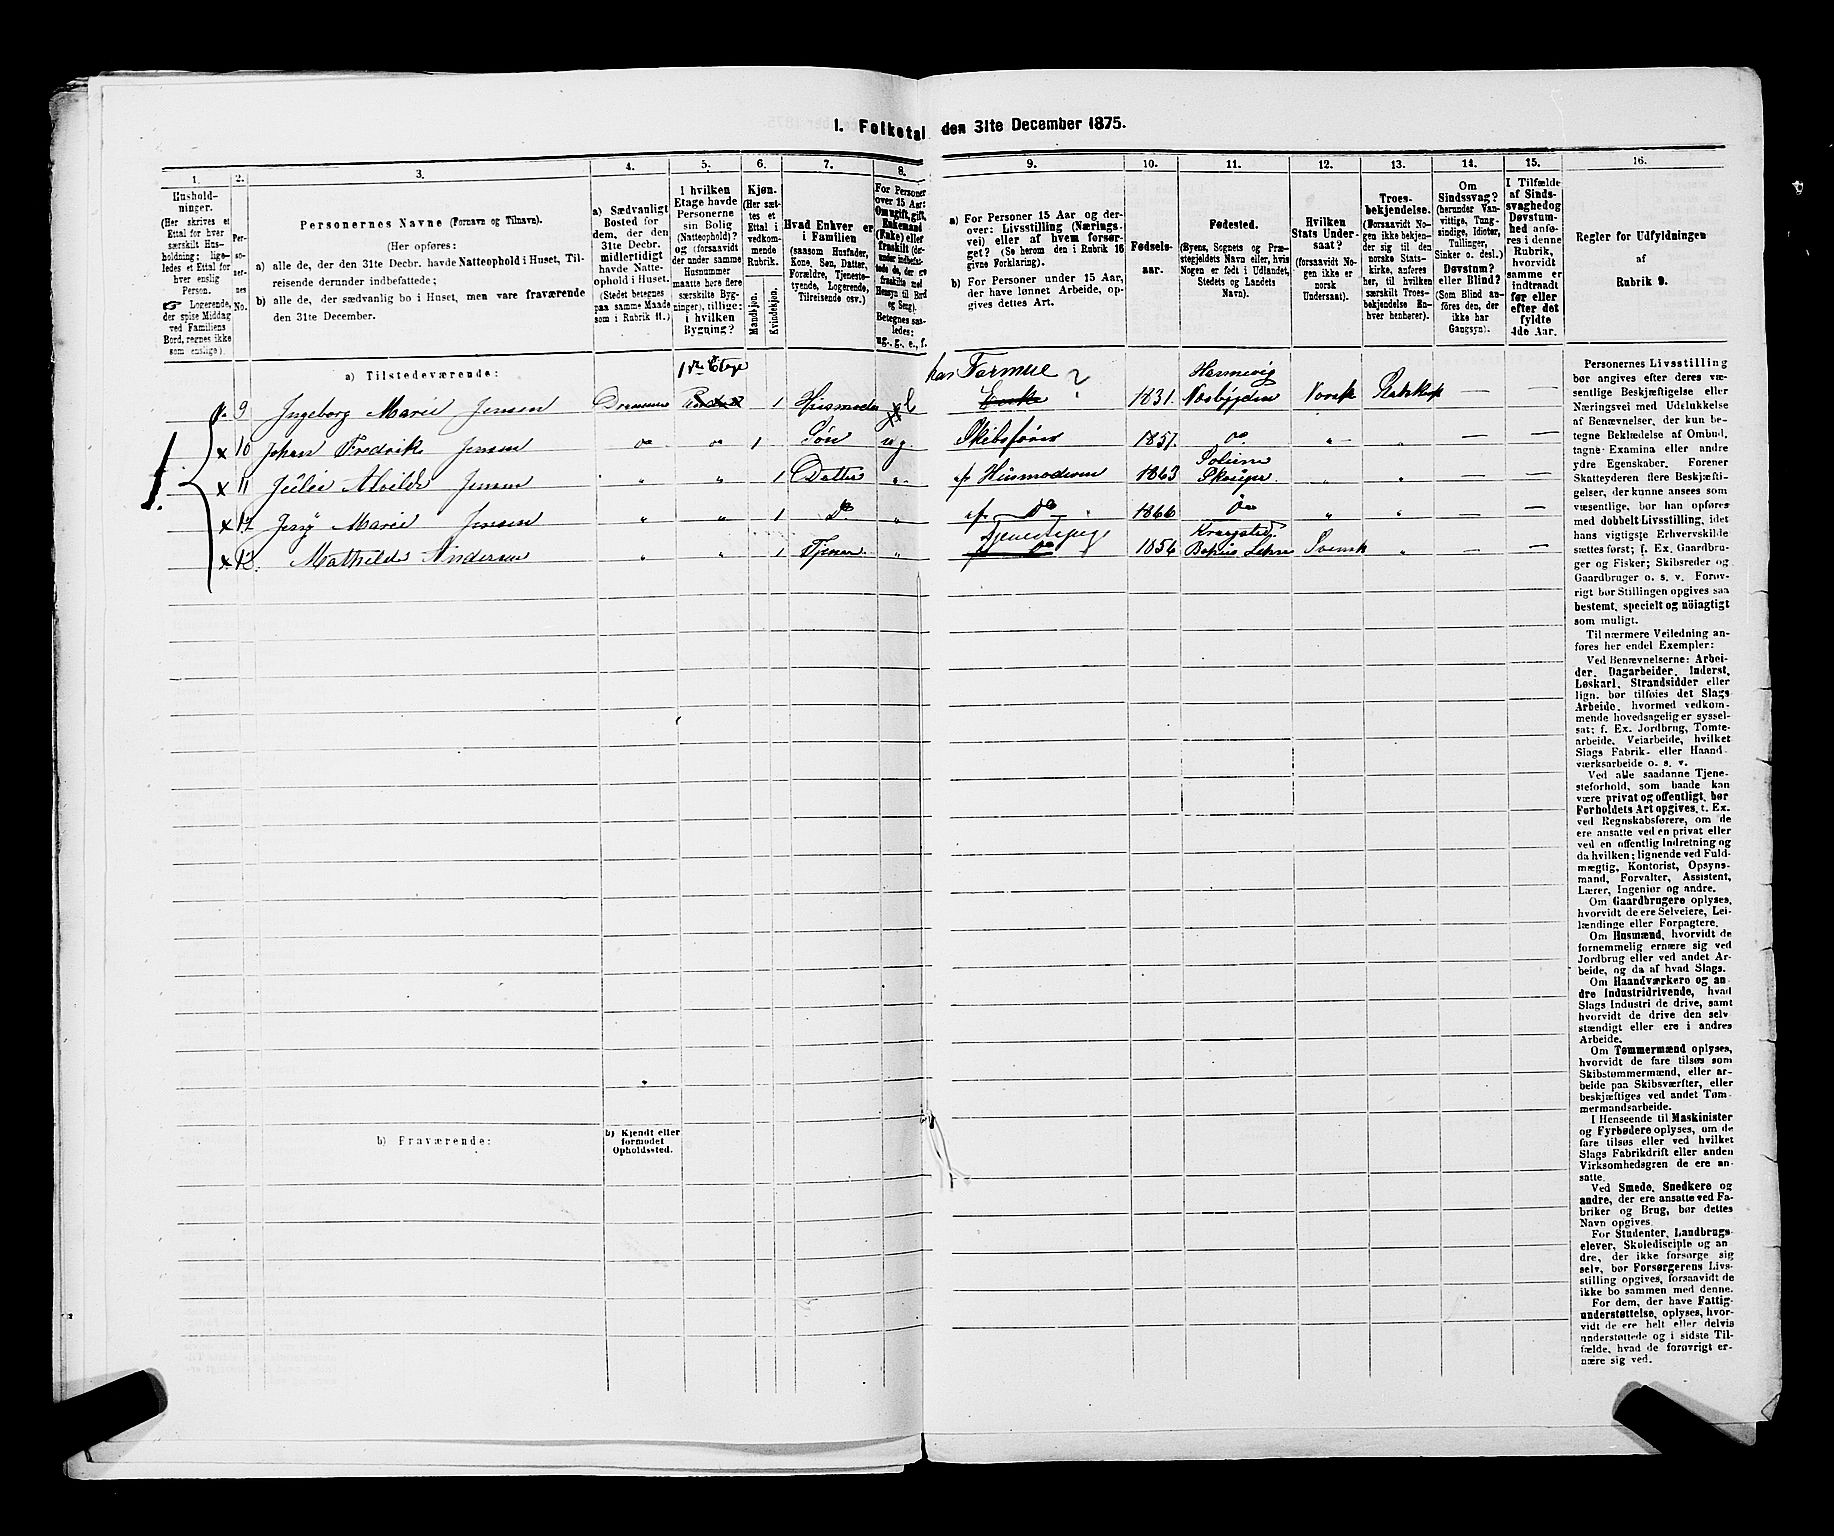 1. Folketal den 31te December 1875.
1.
Husholdninger.
(Her skrives et
Ettal for hver
særskilt Husholdning;
ligeledes et Ettal for
hver enslig
Person.
Logerende,
der spise Middag
ved Familiens
Bord, regnes ikke
som enslige).
2.
Personernes
No.
3.
Personernes Navne (Fornavn og Tilnavn).
(Her opføres:
a) alle de, der den 31te Decbr. havde Natteophold i Huset, Tilreisende
derunder indbefattede;
b) alle de, der sædvanlig bo i Huset, men vare fraværende
den 31te December.
4.
a) Sædvanligt
Bosted for
dem, der den
31te Decbr.
midlertidigt
havde Natteophold
i Huset.
(Stedet betegnes
paa samme Maade
som i Rubrik 11.)
5.
I hvilken
Etage havde
Personerne
sin Bolig
(Natteophold)?
og (forsaavidt
der under samme
Husnummer
maatte høre flere
særskilte Bygninger),
tillige:
i hvilken
Bygning?
6.
Kjøn.
(Her sættes
et
Ettal i
vedkommende
Rubrik.
Mandkjøn.
Kvindekjøn.
7.
Hvad Enhver er
i Familien
(saasom Husfader,
Kone, Søn, Datter,
Forældre, Tjenestetyende,
Logerende,
Tilreisende osv.)
8.
For Personer
over 15 Aar:
Om ugift, gift,
Enkemand
(Enke) eller
fraskilt
Betegnes saaledes:
ug., g., e., f.
9.
a) For Personer 15 Aar og derover:
Livsstilling (Næringsvei)
eller af hvem forsørget?
(Se herom den i Rubrik 16
givne Forklaring).
b) For Personer under 15 Aar,
der have lønnet Arbeide, opgives
dettes Art.
10.
Fødselsaar.
11.
Fødested.
(Byens, Sognets og Præstegjeldets
Navn eller, hvis
Nogen er født i Udlandet,
Stedets og Landets
Navn).
12.
Hvilken
Stats Undersaat?
(forsaavidt Nogen
ikke er
norsk
Undersaat).
13.
Troesbekjendelse.
(Forsaavidt Nogen
ikke bekjender
sig til den
norske Statskirke,
anføres
her, til hvilken
særskilt Troesbekjendelse
Enhver
henhører).
14.
Om
Sindssvag?
(herunder Vanvittige,
Tungsindige,
Idioter,
Tullinger,
Sinker o. desl.)
Døvstum?
eller Blind?
(Som Blind anføres
den, der
ikke har
Gangsyn).
15.
I Tilfælde
af Sindssvaghed
og
Døvstumhed
anføres
i denne
Rubrik,
hvorvidt
samme er
indtraadt
før eller
efter det
fyldte
4de Aar.
16.
Regler for Udfyldningen
af
Rubrik 9.
a) Tilstedeværende:
1ste Etage
har Formue ?
Hasnevig
9 Ingeborg Marie Jensen Drammen 1 Husmoder Enke 1831. Næsbygden Norsk Statskirk — —
x 10 Johan Fredrik Jensen do do 1 Søn ug Skibsfører 1857. do „ „ — —
Solum
1 x 11 Julie Alvilde Jensen „ „ 1 Datter „ af Husmoderen 1863 Skeiger. „ „ — —
x 12 Jenny Marie Jensen „ „ 1 do „ af do „ 1866 do „ „ — —
Tjenestepige Kragstad
x 13. Mathilde Anderson „ „ 1 Tjener „ do 1854 Bahus Lehn Svensk „ — —
b) Fraværende:
b) Kjendt eller
formodet
Opholdssted.
Personernes Livsstilling
bør angives efter deres væsentlige
Beskjæftigelse eller
Næringsvei med Udelukkelse
af Benævnelser, der kun betegne
Beklædelse af Ombud,
tagne Examina eller andre
ydre Egenskaber. Forener
Skatteyderen flere Beskjæftigelser,
der kunne ansees som
væsentlige, bør han opføres
med dobbelt Livsstilling, idet
hans vigtigste Erhvervskilde
sættes først; f. Ex. Gaardbruger
og Fisker; Skibsreder og
Gaardbruger o. s. v. Forøvrigt
bør Stillingen opgives saa
bestemt, specielt og nøiagtigt
som muligt.
Til nærmere Veiledning anføres
her endel Exempler:
Ved Benævnelserne: Arbeider,
Dagarbeider, Inderst,
Løskarl, Strandsidder eller
lign. bør tilføies det Slags
Arbeide, hvormed vedkommende
hovedsagelig er sysselsat;
f. Ex. Jordbrug, Tomtearbeide,
Veiarbeide, hvilket
Slags Fabrik- eller Haandværksarbeide
o. s. v.
Ved alle saadanne Tjenesteforhold,
som baade kan
være privat og offentligt, bør
Forholdets Art opgives, t. Ex.
ved Regnskabsførere, om de
ere ansatte ved en privat eller
ved en offentlig Indretning og
da hvilken; lignende ved Fuldmægtig,
Kontorist, Opsynsmand,
Forvalter, Assistent,
Lærer, Ingeniør og andre.
Om Gaardbrugere oplyses,
hvorvidt de ere Selveiere, Leilændinge
eller Forpagtere.
Om Husmænd, hvorvidt de
fornemmelig ernære sig ved
Jordbrug eller ved andet Arbeide,
og da af hvad Slags.
Om Haandværkere og andre
Industridrivende, hvad
Slags Industri de drive, samt
hvorvidt de drive den selvstændigt
eller ere i andres
Arbeide.
Om Tømmermænd oplyses,
hvorvidt de fare tilsøs som
Skibstømmermænd, eller arbeide
paa Skibsværfter, eller
beskjæftiges ved andet Tømmermandsarbeide.
I Henseende til Maskinister
og Fyrbødere oplyses, om de
fare tilsøs eller ved hvilket
Slags Fabrikdrift eller anden
Virksomhedsgren de ere ansatte.
Ved Smede, Snedkere og
andre, der ere ansatte ved Fabriker
og Brug, bør dettes
Navn opgives.
For Studenter, Landbrugselever,
Skoledisciple og andre,
der ikke forsørge sig
selv, bør Forsørgerens Livsstilling
opgives, forsaavidt de
ikke bo sammen med denne.
For dem, der have Fattigunderstøttelse,
oplyses, hvorvidt
de ere helt eller delvis
understøttede og i sidste Tilfælde,
hvad de forøvrigt ernære
sig ved.